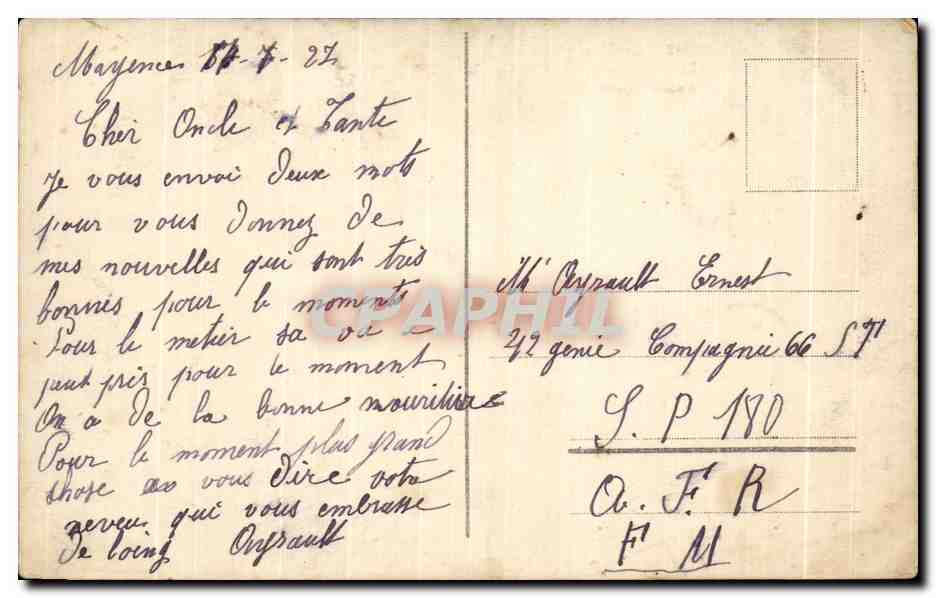 Mayence 11-7-27
Cher Oncle et Tante
Je vous envoi deux mots
pour vous donnez de
mes nouvelles qui sont très
bonnes pour le moments
Pour le metier sa va a
peut près pour le moment
On a de la bonne nouriture
Pour le moment plus grand
chose a vous dire votre
neveu qui vous embrasse
de loing Ayrault
Mr Ayrault Ernest
42 genie Compagnie 66
S. P 180
A. F. R
F M
CPAPHIL